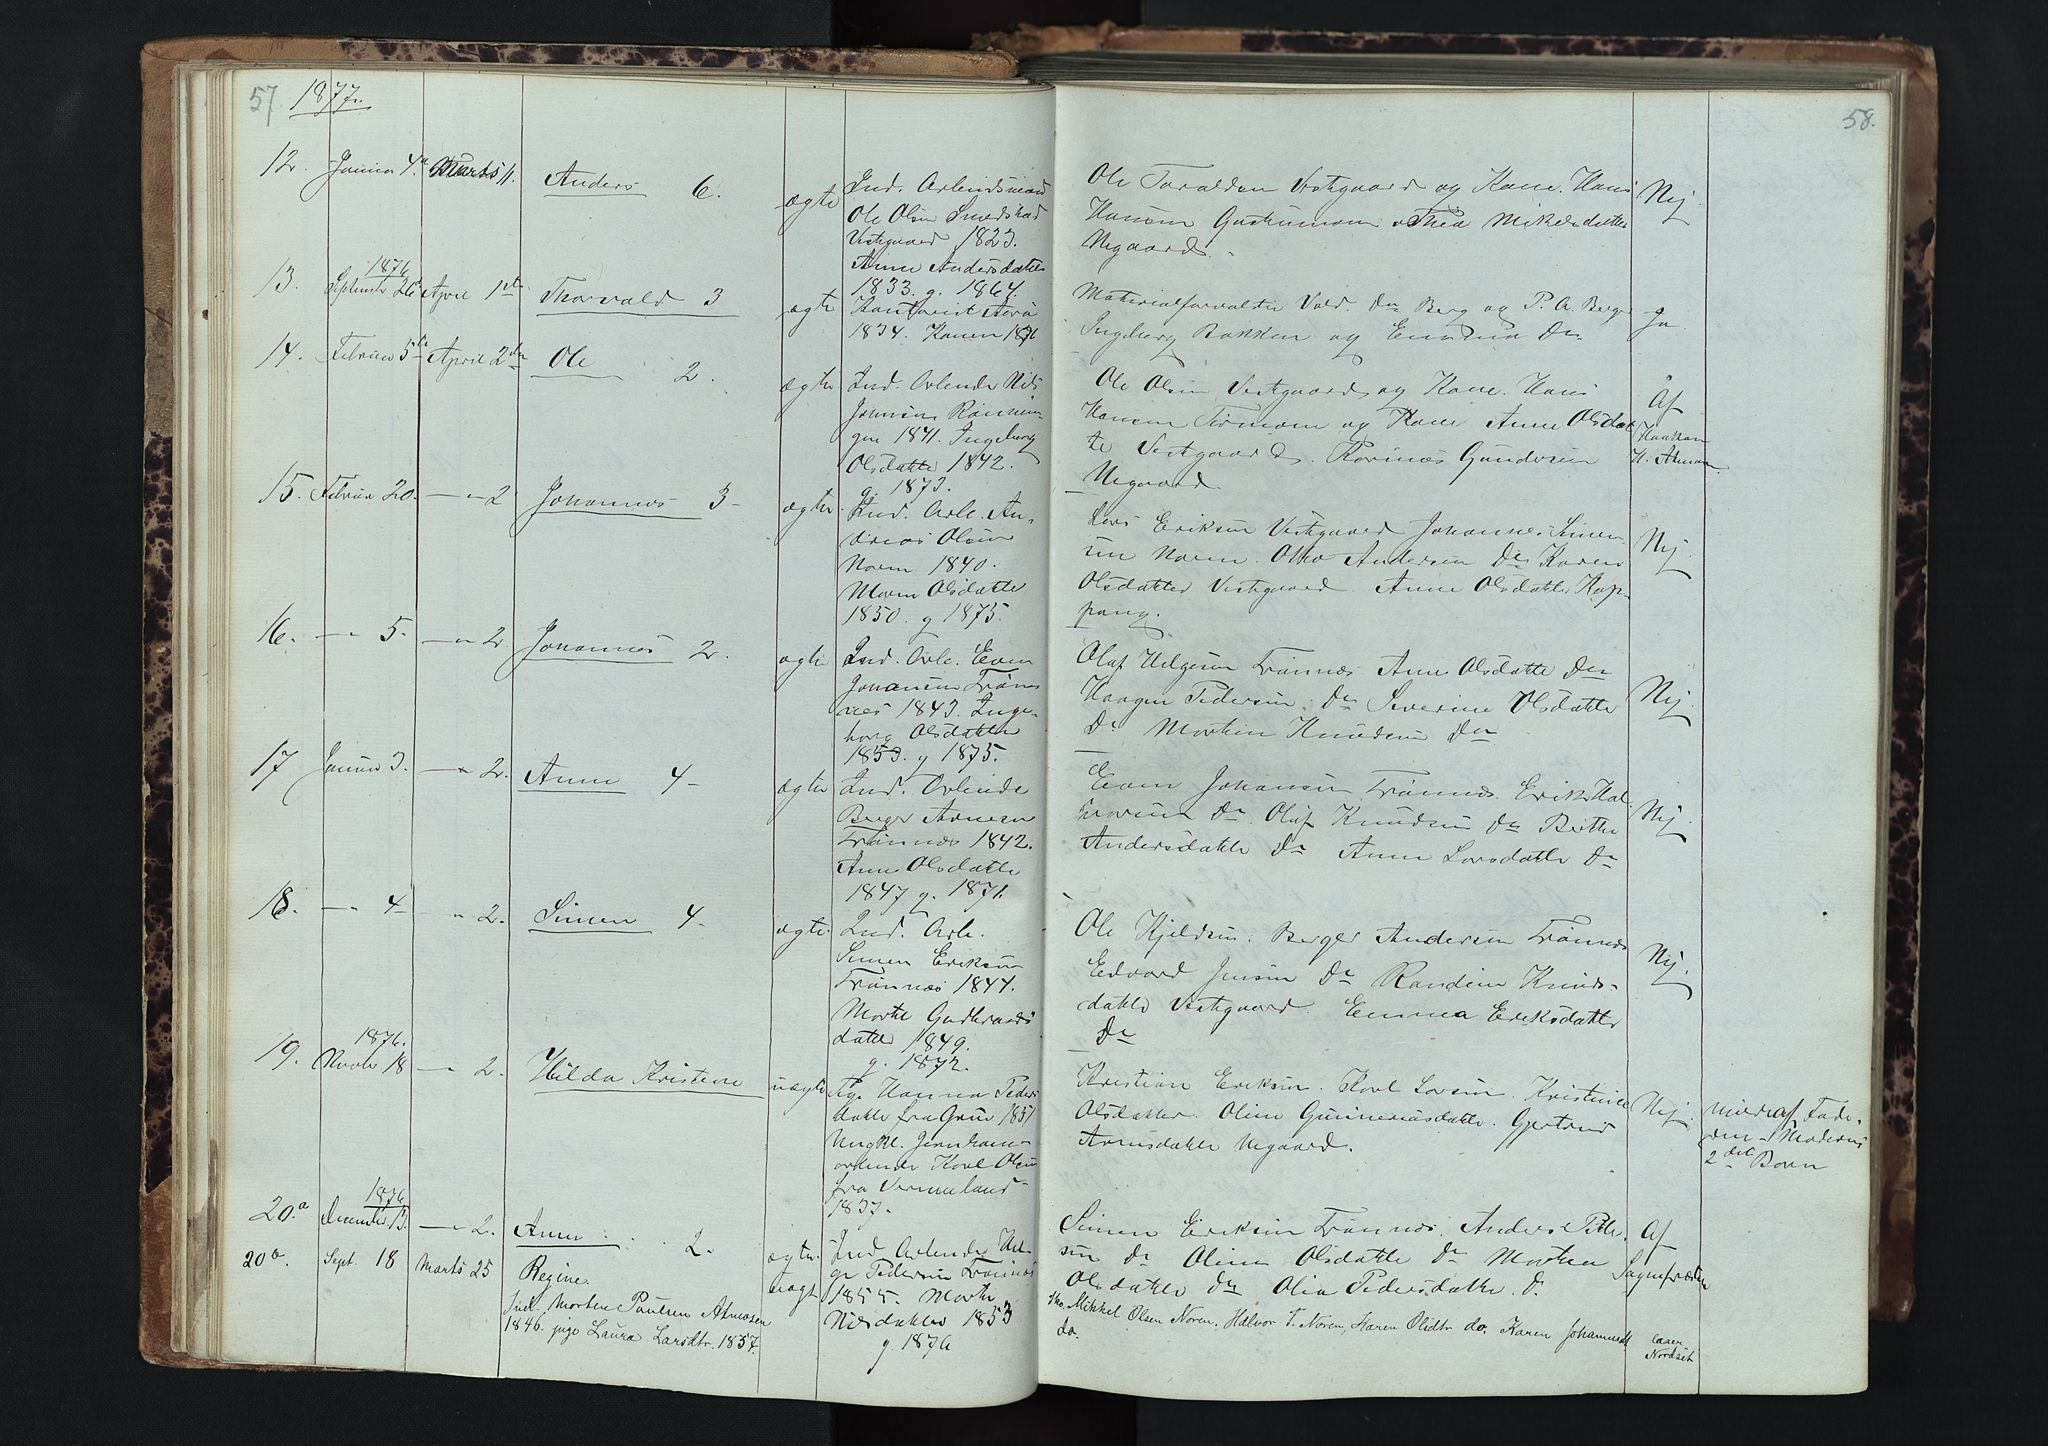 57 1877.
58.
12. Januar 4. Marts 11. Anders 6. ægte
Ind. Arbeidsmand
Ole Olsen Smedstad
Vestgaard 1823.
Anne Andersdatter
1833. g. 1864.
Ole Taraldsen Vestgaard og Kone. Hans
Hansen og Thea Mikelsdatter
Negaard.
Nej
13. 1876
Septembr 26 April 1ste Thorvald 3 ægte
1834. Konen 1836
Materialforvalter Vald. Do Berg og P. A. Berg
Ingeborg Bakken og Emma Do
Ja
14. Februar 5te April 2den Ole 2. ægte
Ind. Arbeider Nils
Johnsen Rønnin-
gen 1841. Ingeborg
Olsdatter 1842.
g. 1873.
Ole Olsen Vestgaard og Kone. Hans
Hansen og Kone Anne Olsdat-
ter Vestgaard. Gundersen
Negaard.
Af
Haakon
H. Atneosen
15. Februar 20. — " 2 Johannes 3 ægte
Ind. Arb. An-
dreas Olsen
Noren 1840.
Maren Olsdatter
1850. g 1875.
Lars Eriksen Vestgaard Johannes Simen-
sen Noren. Otto Andersen Do Karen
Olsdatter Vestgaard Anne Olsdatter Kop-
pang.
Nej
16. — " 5. — " 2 Johannes 2. ægte
Ind. Arb. Even
Johansen Trøn-
næs 1843. Inge-
borg Olsdatter
1853. g 1875.
Olaf Helgesen Trønnæs Anne Olsdatter Do
Haagen Pedersen Do Severine Olsdatter
Do Morten Knudsen Do
Nej
17 Januar 3. — " 2. Anne 4 ægte
Ind. Arbeider
Berger Arnesen
Trønnæs 1842.
Anne Olsdatter
1847 g. 1871.
Even Johansen Trønnæs. Erik Hal-
vorsen Do Olaf Knudsen Do Berthe
Andersdatter Do Anne Larsdatter Do
Nej
18. — " 4 — " 2. Simen 4 ægte.
Ind. Arb.
Simen Eriksen
Trønnæs 1844.
Marte Gudbrands
datter 1849.
g. 1872.
Ole Kjeldsen. Berger Andersen Trønnæs
Edvard Jensen Do Randine Knuds-
datter Vestgaard. Emma Eriksdatter
Do
Nej.
19. 1876.
Novbr 18 — " 2. Hilda Kristine uægte
Pige Hanna Peders
datter fra Grue 1851
Ungkl. Jernbane-
arbeider Karl Olsen
fra Vermeland
1837.
Kristian Eriksen. Karl Larsen. Kristine
Olsdatter. Oline Gunneriusdatter. Gjertrud
Arnesdatter Negaard.
Nej.
Fade-
ren Moderens
2det Barn
20.a 1876
December 13. — " 2. Anne 2. ægte.
Ind Arbeider Hel-
ge Pedersen Trønnæs
1855. Marte
Nilsdatter 1853
g. 1876
Simen Eriksen Trønnæs. Anders Peder-
sen Do Oline Olsdatter Do Marthea
Olsdatter Do Olia Pedersdatter. Do
Af
Sognepræsten
20b. Sept. 18 Marts 25 Regine uægt
Morten Paulsen Atneosen
1846. pige Laura Larsdtr. 1857.
Mikkel Olsen Noren, Halvor T. Noren, Karen Olsdtr do. Karen Johannesdt
do.
Nordset